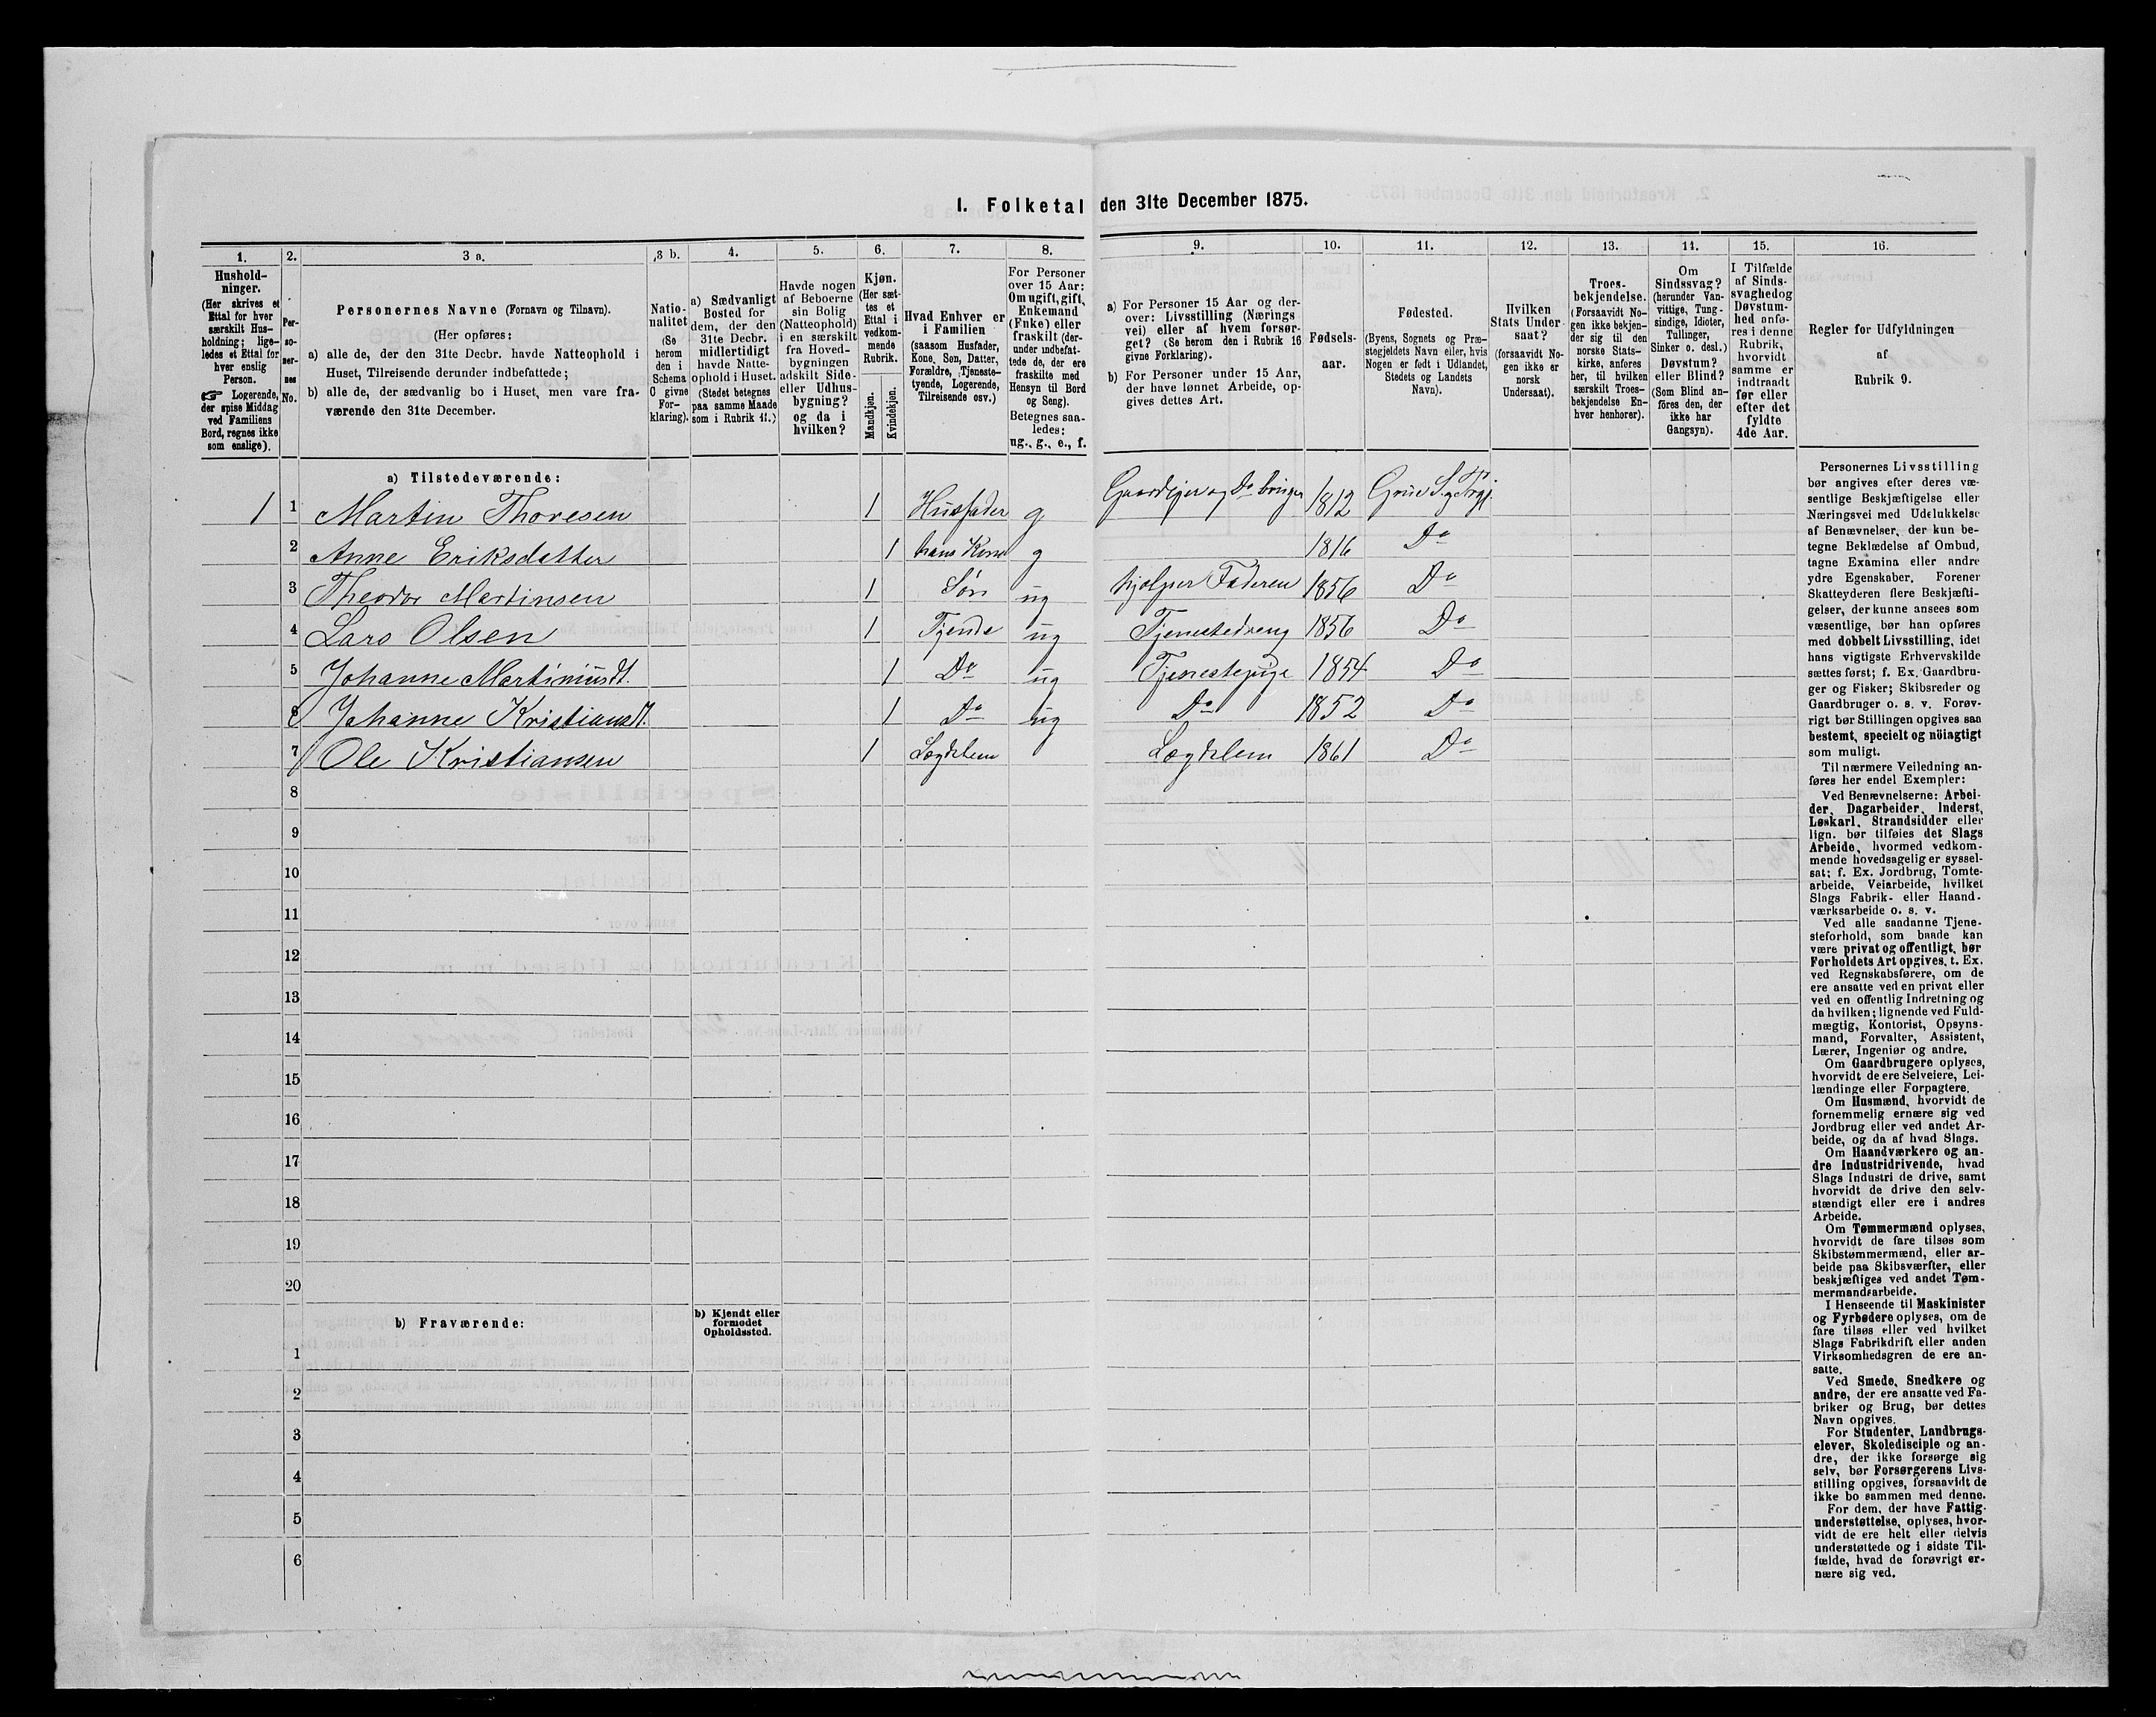 I. Folketal den 31te December 1875.
1. 2. 3 a. 3 b. 4. 5. 6. 7. 8. 9. 10. 11. 12. 13. 14. 15. 16.
Hushold-
ninger.
(Her skrives et
Ettal for hver
særskilt Hus-
holdning; lige-
ledes et Ettal for
hver enslig
Person.
☞ Logerende,
der spise Middag
ved Familiens
Bord, regnes ikke
som enslige).
Per-
so-
ner-
nes
No.
Personernes Navne (Fornavn og Tilnavn).
(Her opføres:
a) alle de, der den 31te Decbr. havde Natteophold i
Huset, Tilreisende derunder indbefattede;
b) alle de, der sædvanlig bo i Huset, men vare fra-
værende den 31te December.
Natio-
nalitet
(Se
herom
den i
Schema
C givne
For-
klaring).
a) Sædvanligt
Bosted for
dem, der den
31te Decbr.
midlertidigt
havde Natte-
ophold i Huset.
(Stedet betegnes
paa samme Maade
som i Rubrik 11.)
Havde nogen
af Beboerne
sin Bolig
(Natteophold)
i en særskilt
fra Hoved-
bygningen
adskilt Side-
eller Udhus-
bygning?
og da i
hvilken?
Kjøn.
(Her sæt-
tes et
Ettal i
vedkom-
mende
Rubrik.
Mandkjøn.
Kvindekjøn.
Hvad Enhver er
i Familien
(saasom Husfader,
Kone, Søn, Datter,
Forældre, Tjeneste-
tyende, Logerende,
Tilreisende osv.)
For Personer
over 15 Aar:
Om ugift, gift,
Enkemand
(Enke) eller
fraskilt (der-
under indbefat-
tede de, der ere
fraskilte med
Hensyn til Bord
og Seng).
Betegnes saa-
ledes:
ug., g., e., f.
a) For Personer 15 Aar og der-
over: Livsstilling (Nærings
vei) eller af hvem forsør-
get? (Se herom den i Rubrik 16
givne Forklaring).
b) For Personer under 15 Aar,
der have lønnet Arbeide, op-
gives dettes Art.
Fødsels-
aar.
Fødested.
(Byens, Sognets og Præ-
stegjeldets Navn eller, hvis
Nogen er født i Udlandet,
Stedets og Landets
Navn).
Hvilken
Stats Under-
saat?
(forsaavidt No-
gen ikke er
norsk
Undersaat).
Troes-
bekjendelse.
(Forsaavidt No-
gen ikke bekjen-
der sig til den
norske Stats-
kirke, anføres
her, til hvilken
særskilt Troes-
bekjendelse En-
hver henhorer).
Om
Sindssvag?
(herunder Van-
vittige, Tung-
sindige, Idioter,
Tullinger,
Sinker o. desl.)
Døvstum?
eller Blind?
(Som Blind an-
føres den, der
ikke har
Gangsyn).
I Tilfælde
af Sinds-
svaghed og
Døvstum-
hed anfø-
res i denne
Rubrik,
hvorvidt
samme er
indtraadt
før eller
efter det
fyldte
4de Aar.
Regler for Udfyldningen
af
Rubrik 9.
a) Tilstedeværende:
1 1 Martin Thoresen 1 Husfader g Gaardejer og Do bruger 1812 Grue S. og Prgj.
2 Anne Eriksdatter 1 hans Kone g 1816 Do
3 Theodor Martinsen 1 Søn ug hjælper Faderen 1856 Do
4 Lars Olsen 1 Tjende ug Tjenestedreng 1856 Do
5 Johanne Martiniusdt. 1 Do ug Tjenestepige 1854 Do
6 Johanne Kristiansdt. 1 Do ug Do 1852 Do
7 Ole Kristiansen 1 Lægdslem Lægdslem 1861 Do
8
9
10
11
12
13
14
15
16
17
18
19
20
b) Fraværende:
b) Kjendt eller
formodet
Opholdssted.
1
2
3
4
5
6
Personernes Livsstilling
bør angives efter deres væ-
sentlige Beskjæftigelse eller
Næringsvei med Udelukkelse
af Benævnelser, der kun be-
tegne Beklædelse af Ombud,
tagne Examina eller andre
ydre Egenskaber. Forener
Skatteyderen flere Beskjæfti-
gelser, der kunne ansees som
væsentlige, bør han opføres
med dobbelt Livsstilling, idet
hans vigtigste Erhvervskilde
sættes først; f. Ex. Gaardbru-
ger og Fisker; Skibsreder og
Gaardbruger o. s. v. Forøv-
rigt bør Stillingen opgives saa
bestemt, specielt og nöiagtigt
som muligt.
Til nærmere Veiledning an-
føres her endel Exempler:
Ved Benævnelserne: Arbei-
der, Dagarbeider, Inderst,
Løskarl, Strandsidder eller
lign. bør tilføies det Slags
Arbeide, hvormed vedkom-
mende hovedsagelig er syssel-
sat; f. Ex. Jordbrug, Tomte-
arbeide, Veiarbeide, hvilket
Slags Fabrik- eller Haand-
værksarbeide o. s. v.
Ved alle saadanne Tjene-
steforhold, som baade kan
være privat og offentligt, bør
Forholdets Art opgives, t. Ex.
ved Regnskabsførere, om de
ere ansatte ved en privat eller
ved en offentlig Indretning og
da hvilken; lignende ved Fuld-
mægtig, Kontorist, Opsyns-
mand, Forvalter, Assistent,
Lærer, Ingeniør og andre.
Om Gaardbrugere oplyses,
hvorvidt de ere Selveiere, Lei-
lændinge eller Forpagtere.
Om Husmænd, hvorvidt de
fornemmelig ernære sig ved
Jordbrug eller ved andet Ar-
beide, og da af hvad Slags.
Om Haandværkere og an-
dre Industridrivende, hvad
Slags Industri de drive, samt
hvorvidt de drive den selv-
stændigt eller ere i andres
Arbeide.
Om Tømmermænd oplyses,
hvorvidt de fare tilsøs som
Skibstømmermænd, eller ar-
beide paa Skibsværfter, eller
beskjæftiges ved andet Tøm-
mermandsarbeide.
I Henseende til Maskinister
og Fyrbødere oplyses, om de
fare tilsøs eller ved hvilket
Slags Fabrikdrift eller anden
Virksomhedsgren de ere an-
satte.
Ved Smede, Snedkere og
andre, der ere ansatte ved Fa-
briker og Brug, bør dettes
Navn opgives.
For Studenter, Landbrugs-
elever, Skoledisciple og an-
dre, der ikke forsørge sig
selv, bør Forsørgerens Livs-
stilling opgives, forsaavidt de
ikke bo sammen med denne.
For dem, der have Fattig-
understøttelse, oplyses, hvor-
vidt de ere helt eller delvis
understøttede og i sidste Til-
fælde, hvad de forøvrigt er-
nære sig ved.